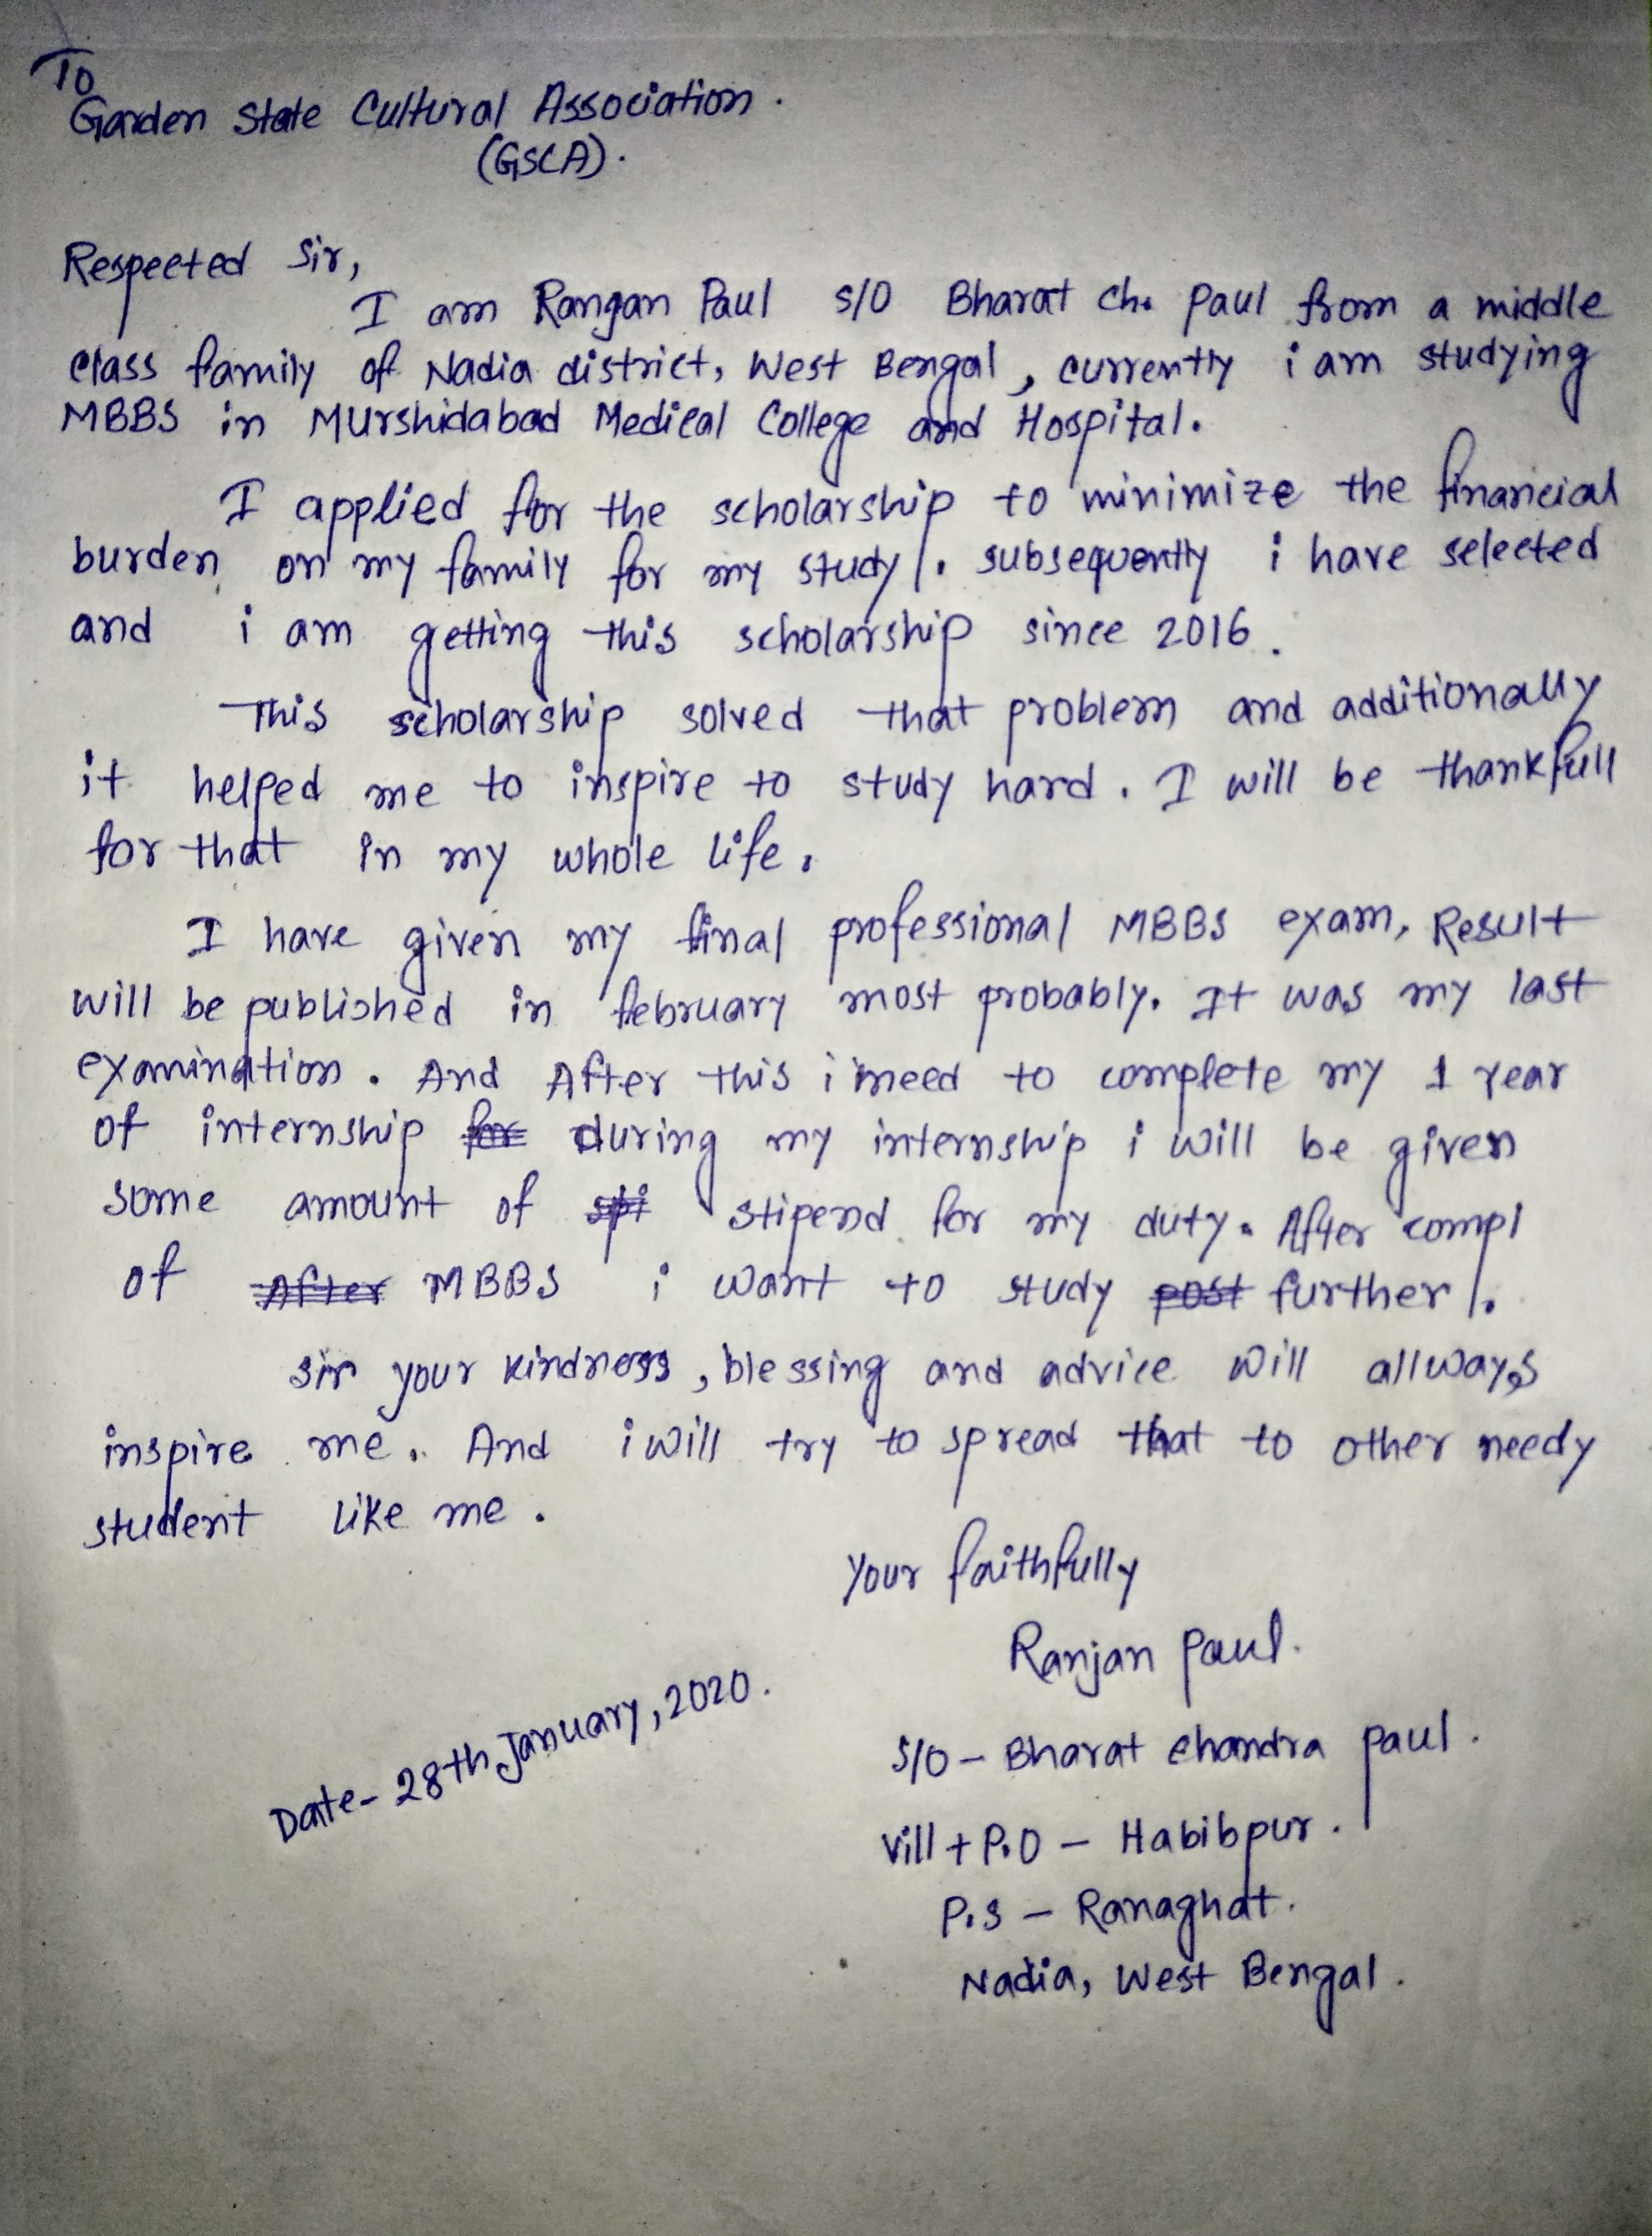 To
Garden State Cultural Association.
(GSCA).
Respected Sir,
I am Rangan Paul S/O Bharat Ch. Paul from a middle
class family of Nadia district, West Bengal, currently i am studying
MBBS in Murshidabad Medical College and Hospital.
I applied for the scholarship to minimize the financial
burden on my family for my study. subsequently i have selected
and i am getting this scholarship since 2016.
This scholarship solved that problem and additionally
it helped me to inspire to study hard. I will be thankfull
for that in my whole life.
I have given my final professional MBBS exam, Result
will be published in february most probably. It was my last
examination. And After this i need to complete my 1 year
of internship for during my internship i will be given
some amount of spi stipend for my duty. After compl
of After MBBS i want to study post further.
sir your kindness, blessing and advice will allways
inspire me. And i will try to spread that to other needy
student like me.
Your faithfully
Ranjan Paul.
Date- 28th January, 2020.
S/O - Bharat Chandra Paul.
Vill + P.O - Habibpur.
P.S - Ranaghat.
Nadia, West Bengal.